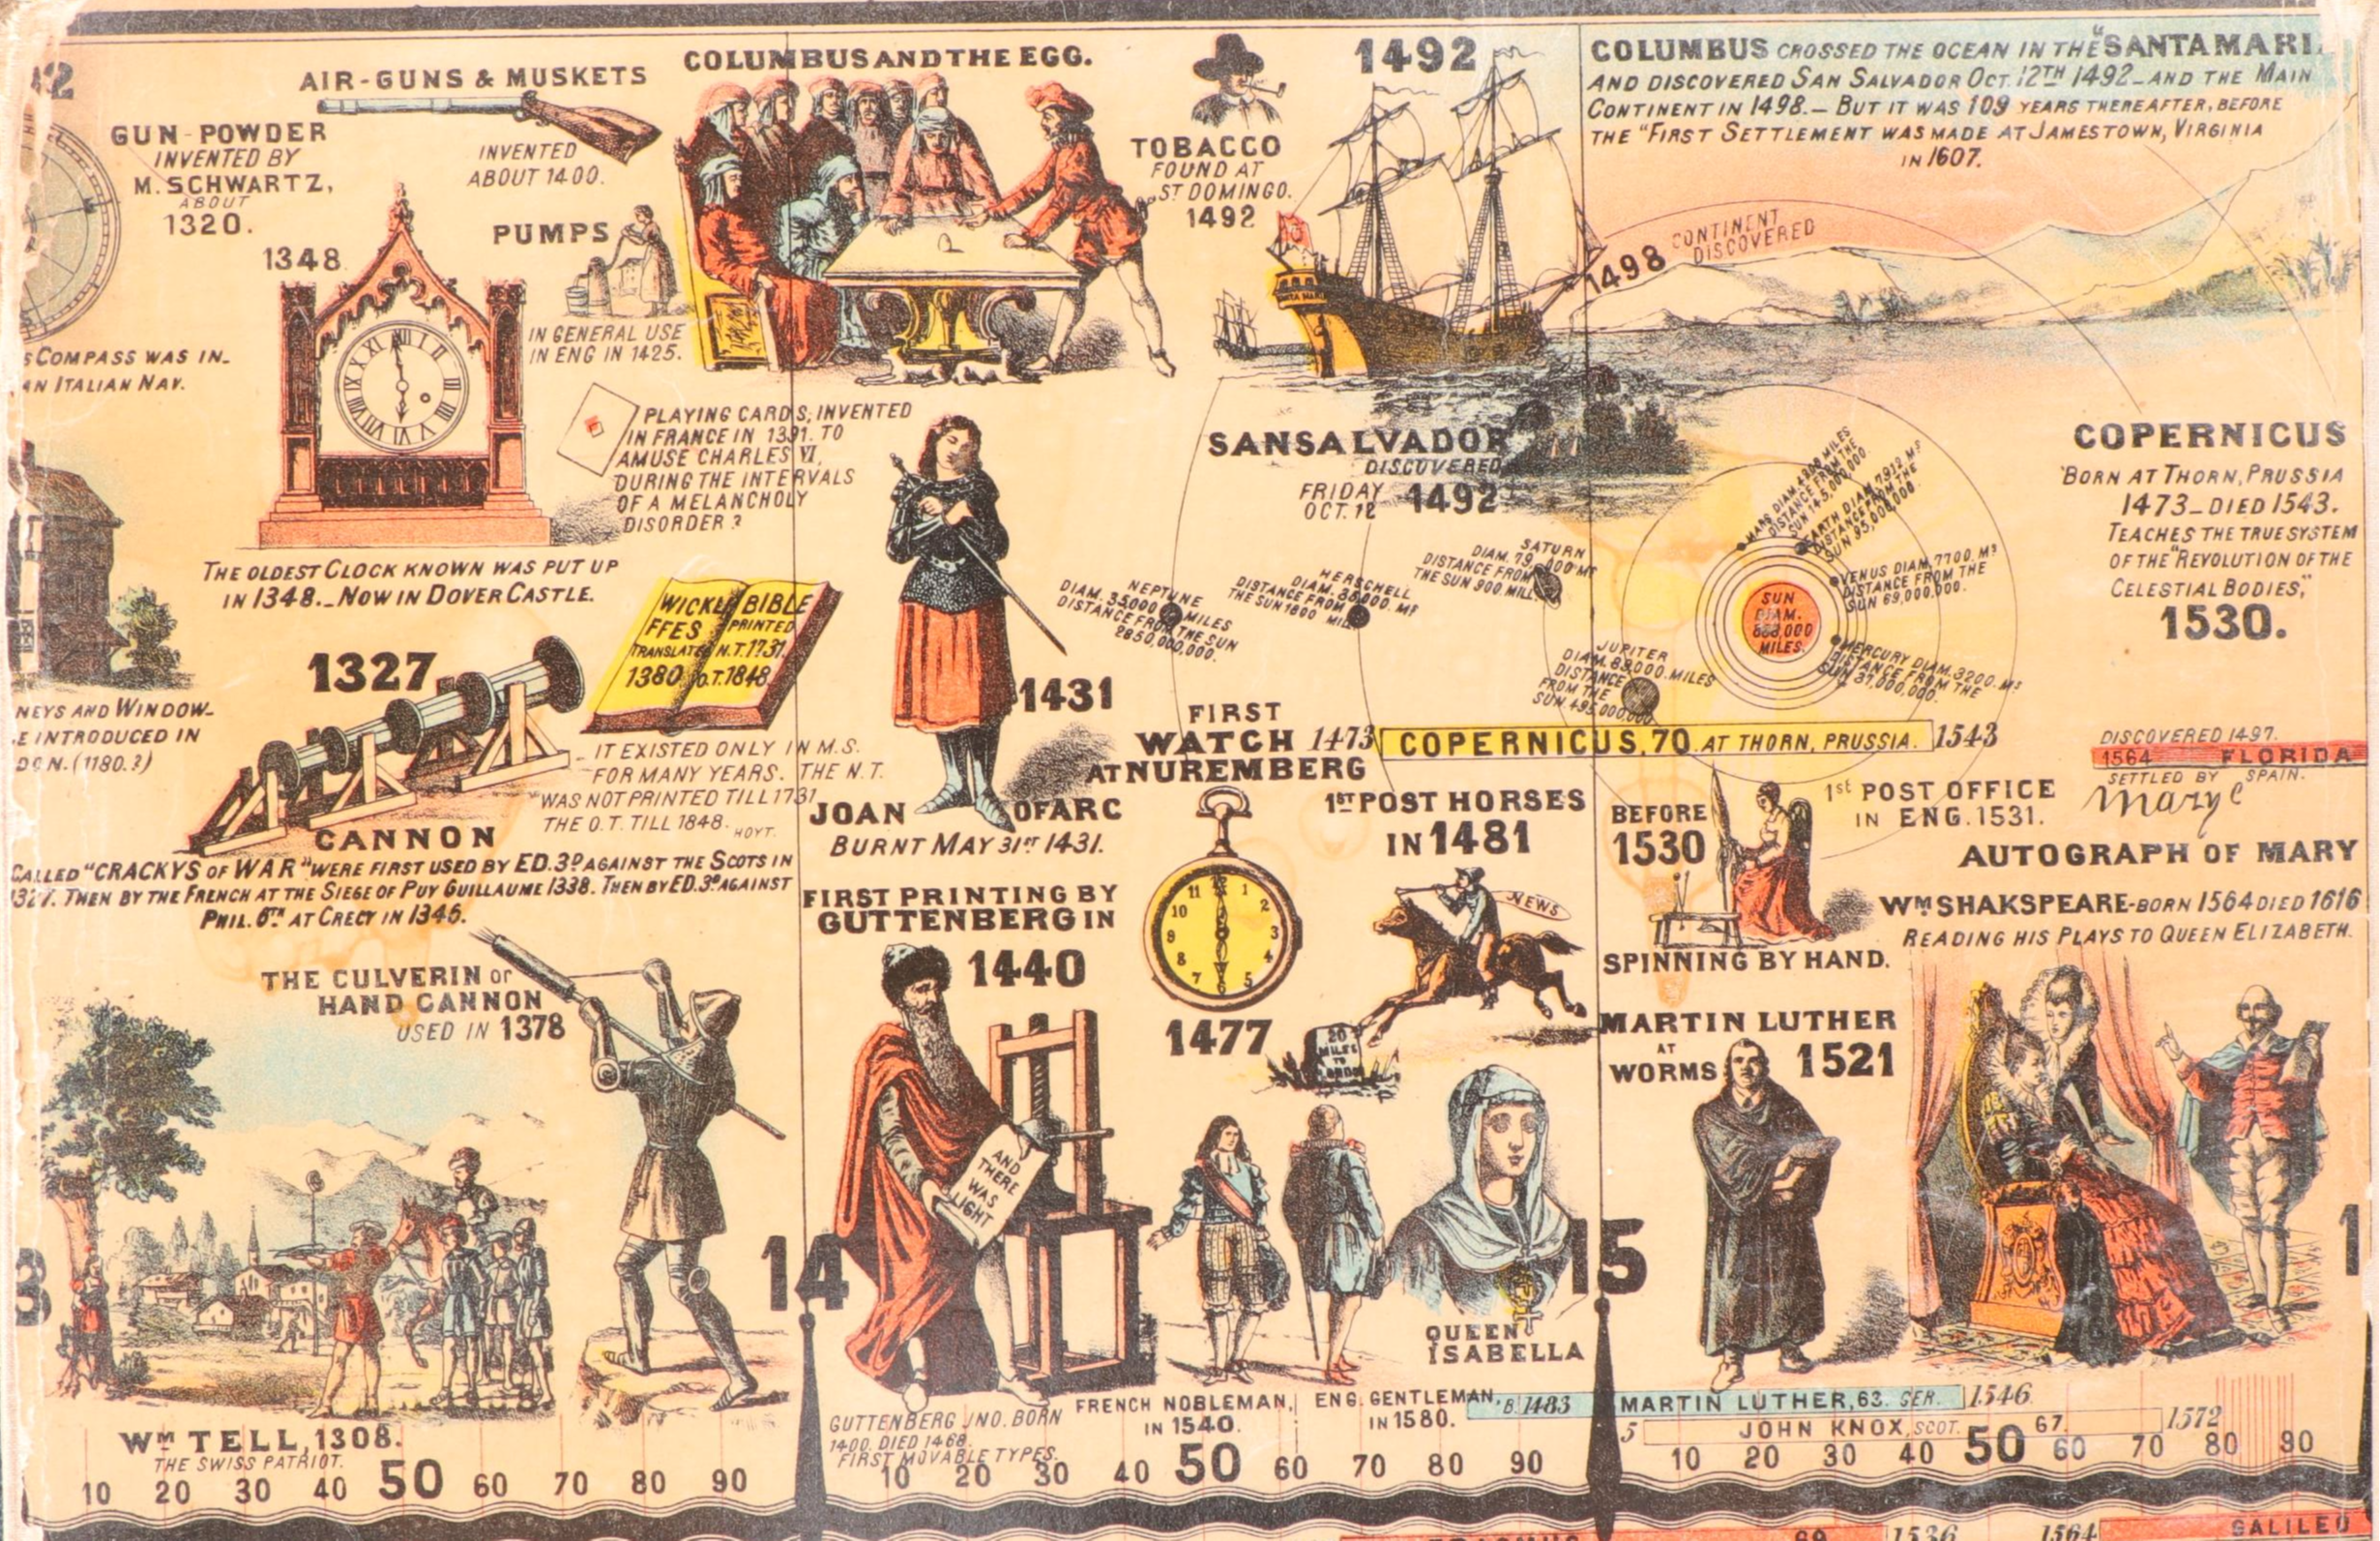 AIR-GUNS & MUSKETS
INVENTED
ABOUT 1400.
GUN-POWDER
INVENTED BY
M. SCHWARTZ,
ABOUT
1320.
COLUMBUS AND THE EGG.
TOBACCO
FOUND AT
ST DOMINGO.
1492
1492
SANTA MARIA
COLUMBUS CROSSED THE OCEAN IN THE "SANTA MARI
AND DISCOVERED SAN SALVADOR OCT. 12TH 1492_AND THE MAIN
CONTINENT IN 1498._ BUT IT WAS 109 YEARS THEREAFTER, BEFORE
THE "FIRST SETTLEMENT WAS MADE AT JAMESTOWN, VIRGINIA
IN 1607.
1498 CONTINENT
DISCOVERED
PUMPS
IN GENERAL USE
IN ENG IN 1425.
1348
THE OLDEST CLOCK KNOWN WAS PUT UP
IN 1348._NOW IN DOVER CASTLE.
S COMPASS WAS IN_
AN ITALIAN NAV.
PLAYING CARDS, INVENTED
IN FRANCE IN 1391. TO
AMUSE CHARLES VI,
DURING THE INTERVALS
OF A MELANCHOLY
DISORDER ?
SAN SALVADOR
DISCOVERED
FRIDAY
OCT. 12 1492
COPERNICUS
BORN AT THORN, PRUSSIA
1473_DIED 1543.
TEACHES THE TRUE SYSTEM
OF THE "REVOLUTION OF THE
CELESTIAL BODIES,"
1530.
NEPTUNE
DIAM. 35,000 MILES
DISTANCE FROM THE SUN
2850,000,000.
HERSCHELL
DIAM. 35,000. MS
DISTANCE FROM
THE SUN 1800 MILL
SATURN
DIAM. 79,000 MS
DISTANCE FROM
THE SUN 900. MILL.
JUPITER
DIAM. 89,000 MILES
DISTANCE
FROM THE
SUN 495,000,000
SUN
DIAM.
888,000
MILES.
MARS DIAM 4398 MILES
DISTANCE FROM THE
SUN 145,000,000
EARTH DIAM. 7912 MS
DISTANCE FROM THE
SUN 95,000,000.
VENUS DIAM, 7700. MS
DISTANCE FROM THE
SUN 69,000,000.
MERCURY DIAM. 3200. MS
DISTANCE FROM THE
SUN 37,000,000.
WICKLIFFES BIBLE
TRANSLATED 1380
PRINTED
N.T. 1731.
O.T. 1848
IT EXISTED ONLY IN M.S.
FOR MANY YEARS. THE N.T.
WAS NOT PRINTED TILL 1731
THE O.T. TILL 1848. HOYT.
NEYS AND WINDOW_
E INTRODUCED IN
DON. (1180.?)
1327
CANNON
CALLED "CRACKYS OF WAR" WERE FIRST USED BY ED. 3D AGAINST THE SCOTS IN
1327. THEN BY THE FRENCH AT THE SIEGE OF PUY GUILLAUME 1338. THEN BY ED. 3D AGAINST
PHIL. 6TH AT CRECY IN 1346.
1431
JOAN OF ARC
BURNT MAY 31ST 1431.
FIRST
WATCH
AT NUREMBERG
12 1 2 3 4 5 6 7 8 9 10 11
1477
1473 COPERNICUS, 70 AT THORN, PRUSSIA. 1543
1ST POST HORSES
IN 1481
NEWS
20
MILES
TO
LONDON
BEFORE
1530
SPINNING BY HAND.
1st POST OFFICE
IN ENG. 1531.
DISCOVERED 1497.
1564 FLORIDA
SETTLED BY SPAIN.
Marye
AUTOGRAPH OF MARY
WM SHAKSPEARE-BORN 1564 DIED 1616
READING HIS PLAYS TO QUEEN ELIZABETH.
FIRST PRINTING BY
GUTTENBERG IN
1440
AND
THERE
WAS
LIGHT
THE CULVERIN or
HAND CANNON
USED IN 1378
MARTIN LUTHER
AT
WORMS 1521
3
14
15
1
QUEEN
ISABELLA
FRENCH NOBLEMAN,
IN 1540.
ENG. GENTLEMAN,
IN 1580.
GUTTENBERG JNO. BORN
1400. DIED 1468.
FIRST MOVABLE TYPES.
B. 1483 MARTIN LUTHER, 63. GER. 1546.
5 JOHN KNOX, SCOT. 67. 1572
WM TELL, 1308.
THE SWISS PATRIOT.
10 20 30 40 50 60 70 80 90
10 20 30 40 50 60 70 80 90
10 20 30 40 50 60 70 80 90
69 1536
1564 GALILEO